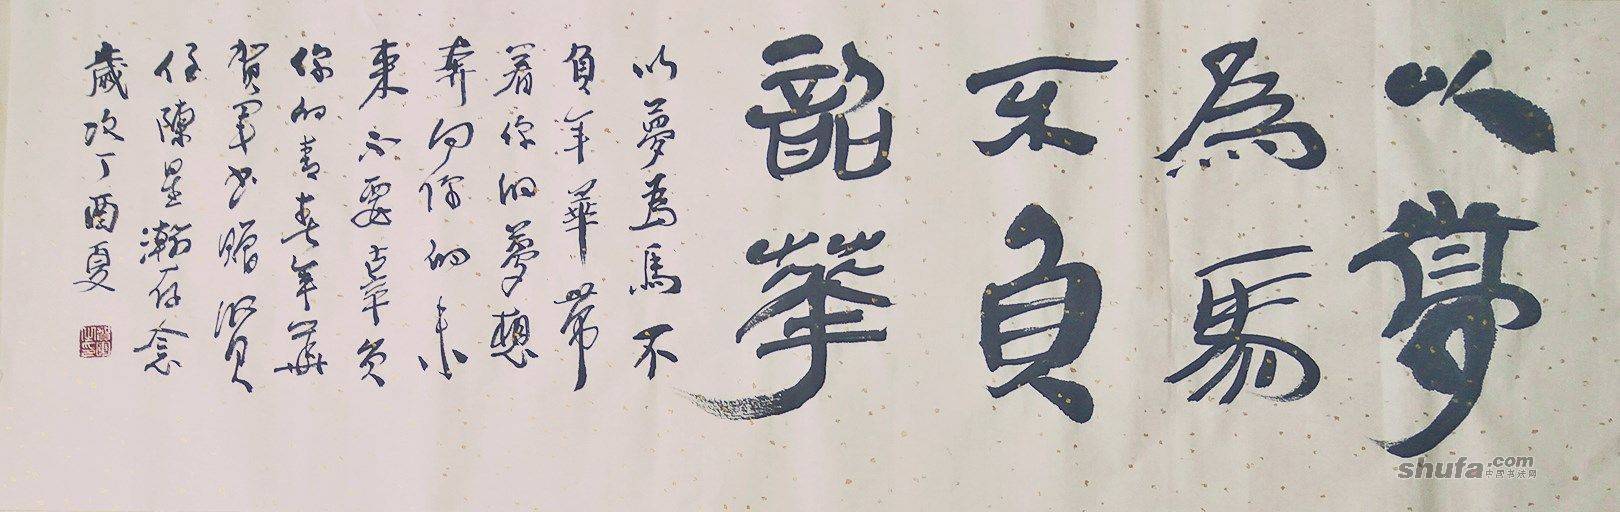 以夢
為馬
不負
韶華
以夢為馬不
負年華帶
着你的夢想
奔向你的未
来不要辜負
你的青春年華
賀軍書贈沢貝
侄陳星瀚存念
歲次丁酉夏
shufa.com
中国书法网